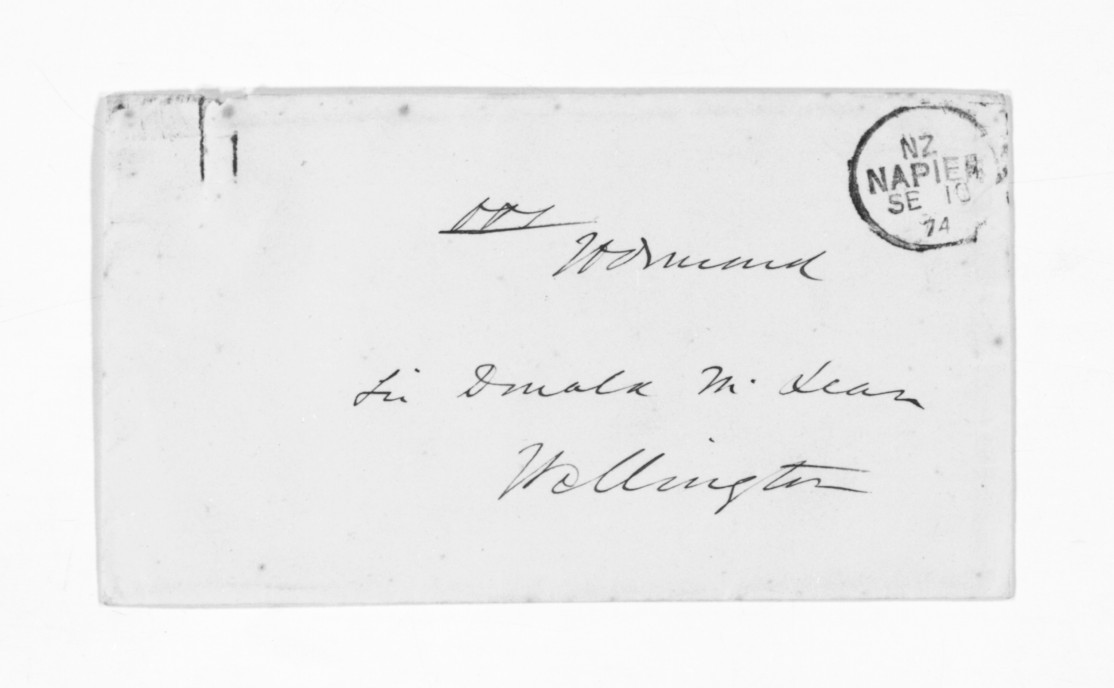 NZ
NAPIER
SE 10
74
Sir Donald M. Lean
Wellington